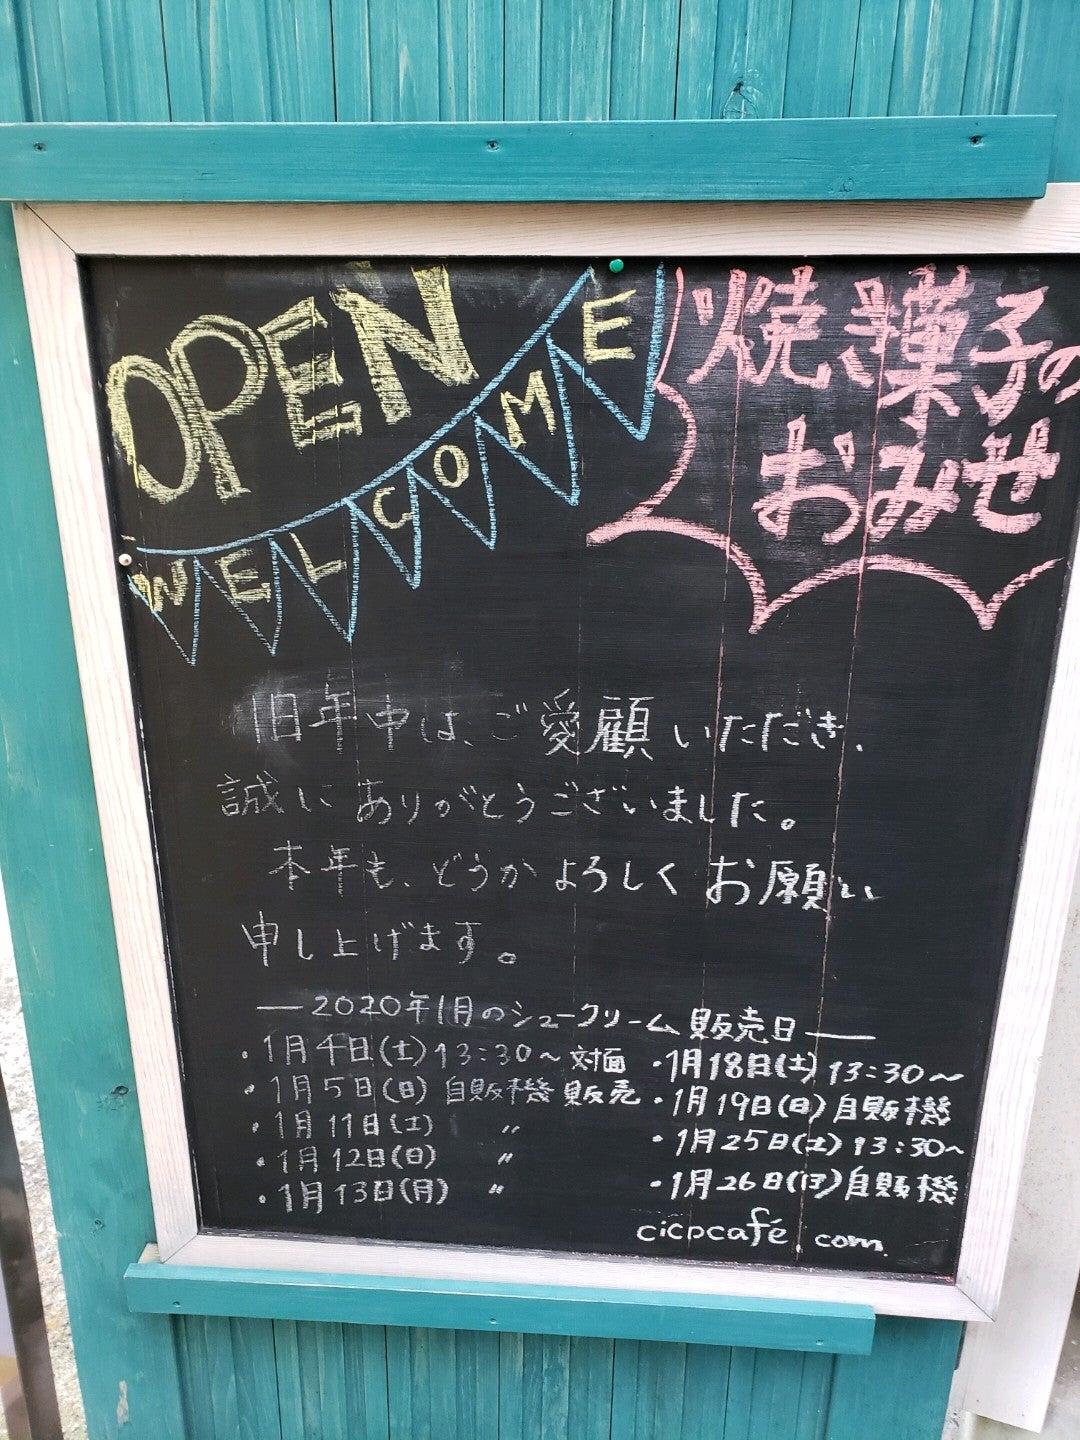 OPEN
WELCOME
焼き菓子の
おみせ
旧年中は、ご愛顧いただき、
誠にありがとうございました。
本年も、どうかよろしくお願い
申し上げます。
—2020年1月のシュークリーム販売日—
・1月4日(土)13:30〜対面
・1月5日(日)自販機販売
・1月11日(土) 〃
・1月12日(日) 〃
・1月13日(月) 〃
・1月18日(土)13:30〜
・1月19日(日)自販機
・1月25日(土)13:30〜
・1月26日(日)自販機
cicocafé.com